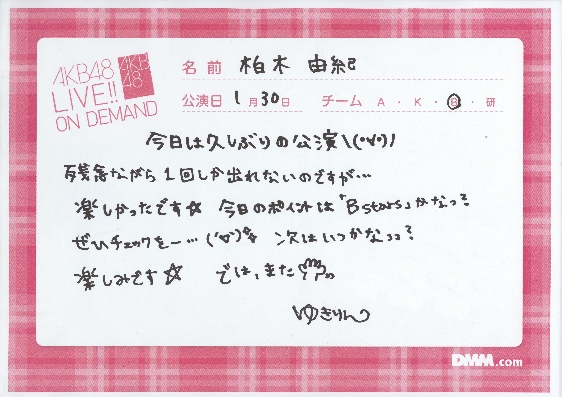 AKB48
LIVE!!
ON DEMAND
AKB
48
名前 柏木 由紀
公演日 1月30日 チーム A・K・B・研
今日は久しぶりの公演\(°∀°)/
残念ながら1回しか出れないのですが…
楽しかったです☆ 今日のポイントは「B stars」かなっ?
ぜひチェックを一…(°∀°) 次はいつかなっっ?
楽しみです☆ では、また
ゆきりん
DMM.com